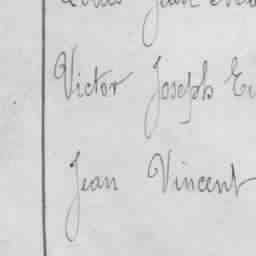 Jean
Victor Joseph
Jean Vincent